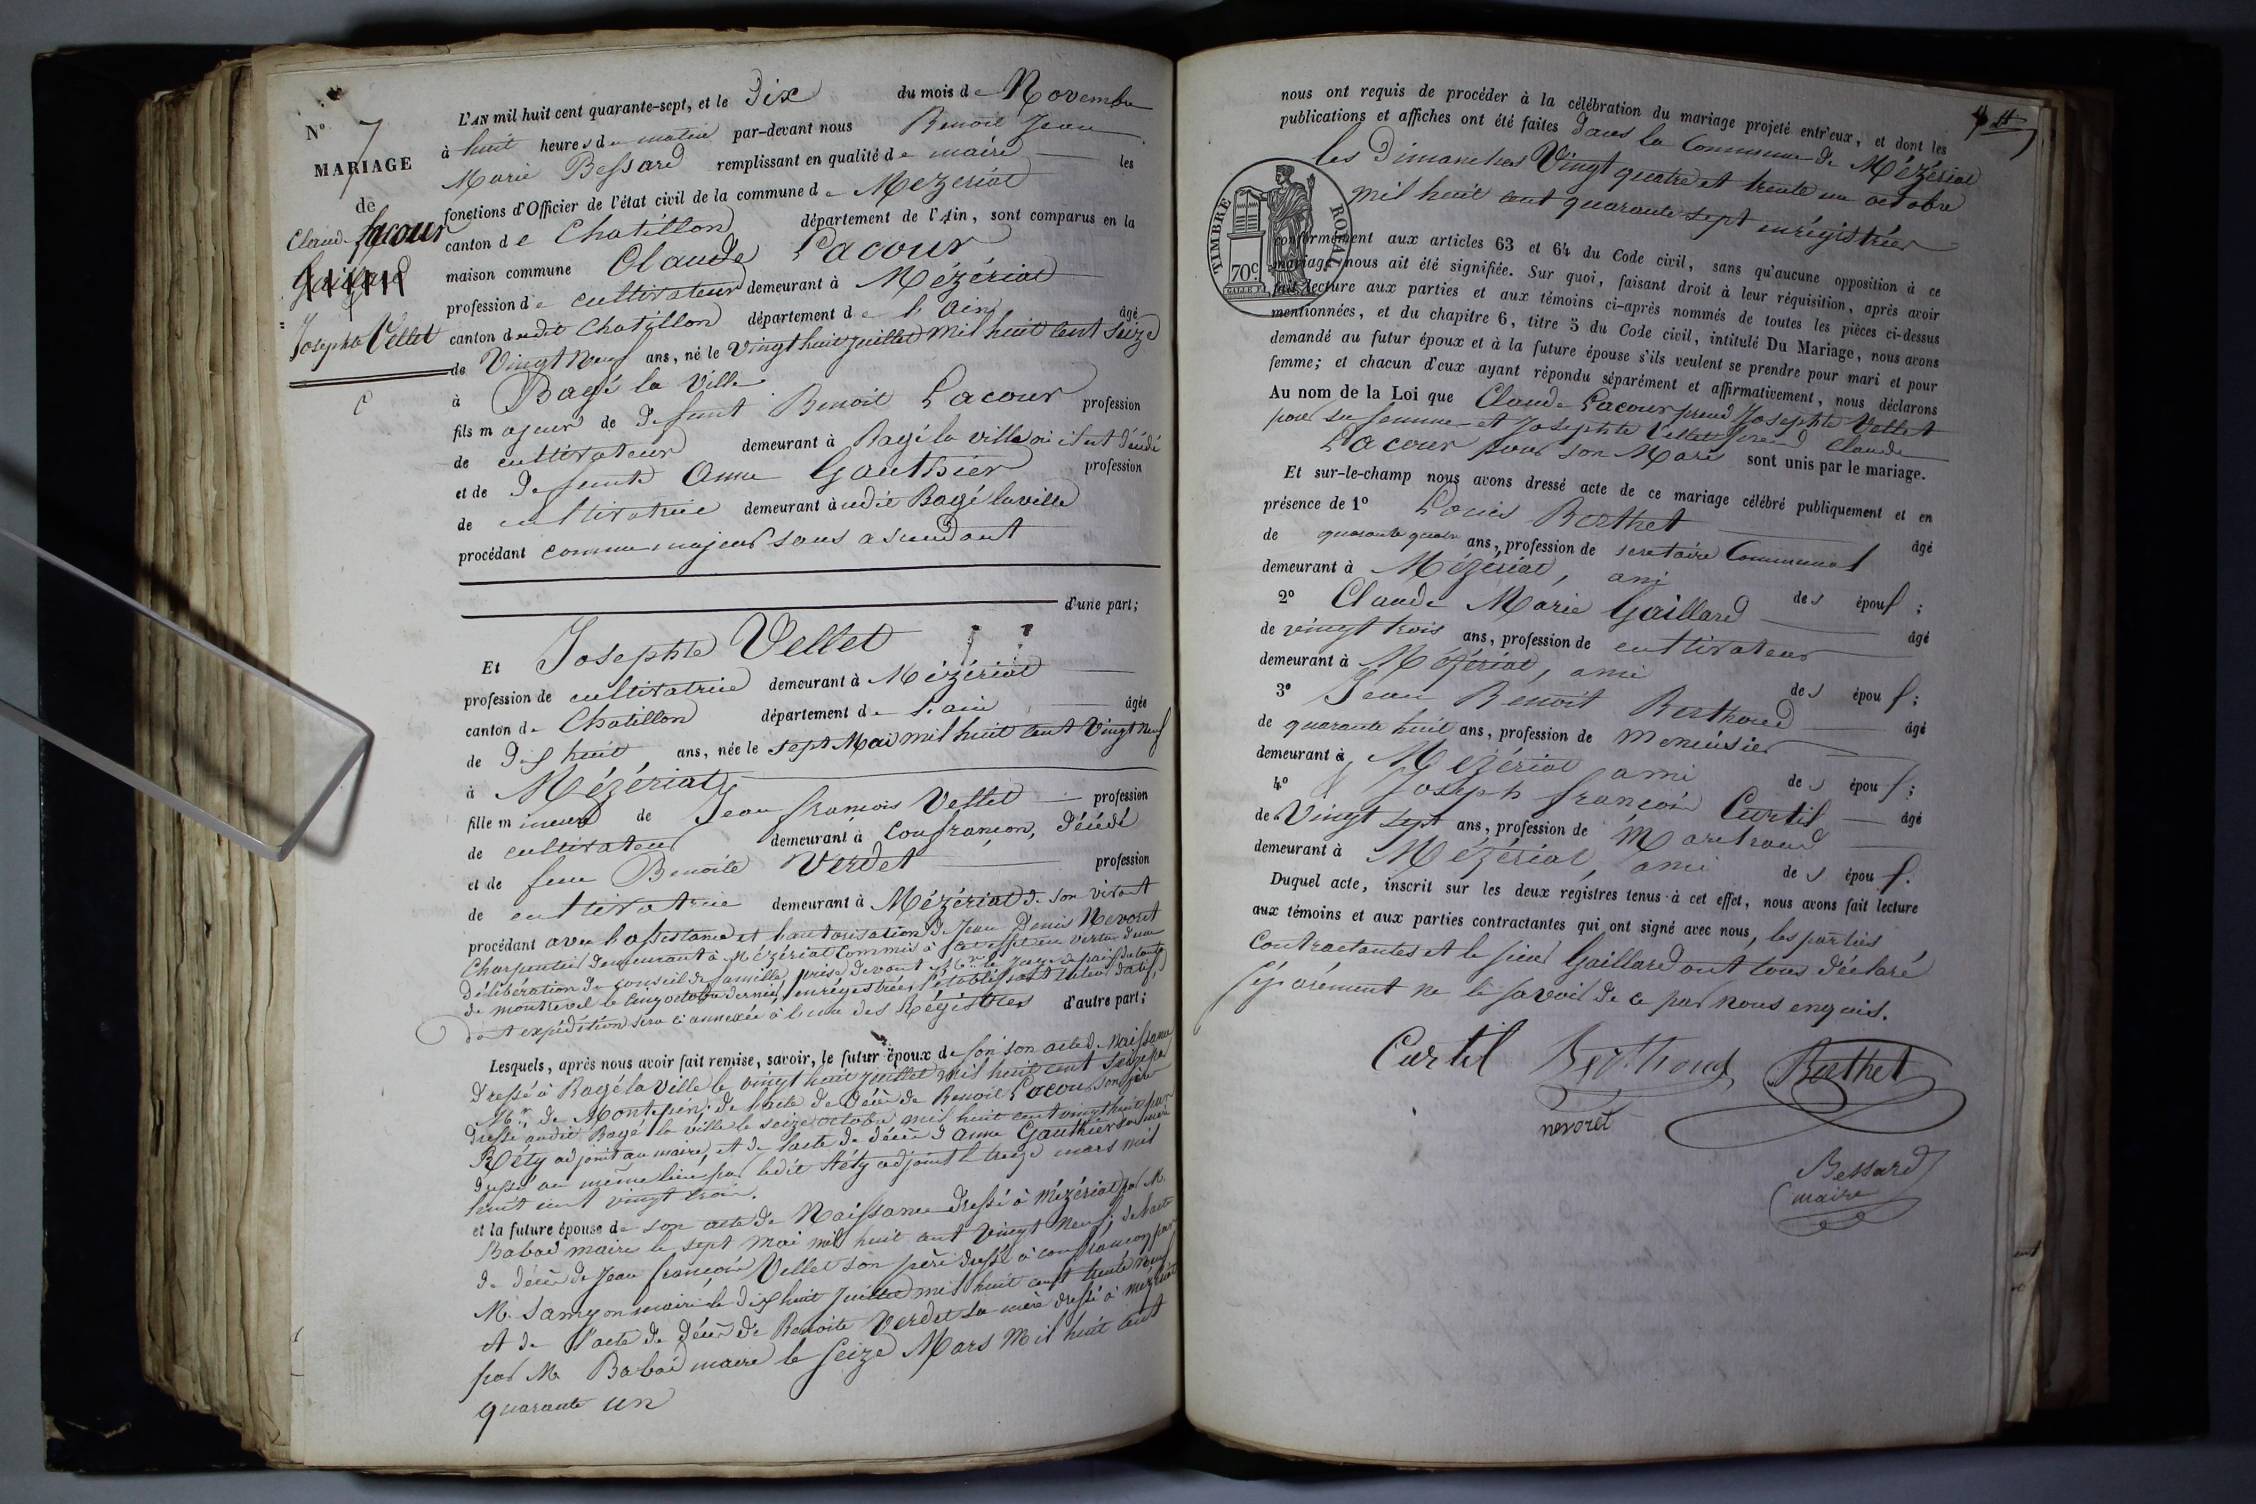 N° 7
MARIAGE
de
Claude Lacour
Gaillard
Josephte Vellet
L'AN mil huit cent quarante-sept, et le Dix du mois de Novembre
à huit heures du matin par-devant nous Benoit Jean
Marie Bessard remplissant en qualité de maire les
fonctions d'Officier de l'état civil de la commune de Mézériat
canton de Chatillon département de l'Ain, sont comparus en la
maison commune Claude Lacour
profession de cultivateur demeurant à Mézériat
canton dudit Chatillon département de l'Ain âgé
de Vingt Neuf ans, né le Vingt huit juillet mil huit cent seize
à Bagé la Ville
fils majeur de defunt Benoit Lacour profession
de cultivateur demeurant à Bagé la ville où il est décédé
et de defunte Anne Gauthier profession
de cultivatrice demeurant à udit Bagé la ville
procédant comme majeur sans ascendant
d'une part;
Et Josephte Vellet
profession de cultivatrice demeurant à Mézériat
canton de Chatillon département de l'ain âgée
de dix huit ans, née le sept Mai mil huit cent Vingt Neuf
à Mézériat
fille mineure de Jean françois Vellet profession
de cultivateur demeurant à Confrançon, décédé
et de feue Benoite Verdet profession
de cultivatrice demeurant à Mézériat de son vivant
procédant avec l'assistance et l'autorisation de Jean Denis Nevoret
Charpentier demeurant à Mézériat Commis à cet effet en vertu d'une
délibération du conseil de famille, prise devant Mr le Juge de paix du canton
de montrevel le cinq octobre dernier, enrégistrée, l'établissant tuteur datif,
dont expédition sera ci annexée à l'un des Régistres d'autre part;
Lesquels, après nous avoir fait remise, savoir, le futur époux de son acte de Naissance
dressé à Bagé la Ville le vingt huit juillet mil huit cent seize par
Mr de Montepin; de l'acte de décès de Benoit Lacour son père
dressé audit Bagé la ville le seize octobre mil huit cent vingt huit par
Réty adjoint au maire, et de l'acte de décès d'Anne Gauthier sa mère
dressé au même lieu par ledit Réty adjoint le treize mars mil
huit cent vingt trois.
et la future épouse de son acte de Naissance dressé à Mézériat par M.
Babad maire le sept mai mil huit cent Vingt Neuf; de l'acte
de décès de Jean françois Vellet son père dressé à confrançon par
M. Samyon maire le dix huit Juillet mil huit cent trente neuf
et de l'acte de décès de Benoite Verdet sa mère dressé à mezériat
par M. Babad maire le seize Mars mil huit cent
quarante un
nous ont requis de procéder à la célébration du mariage projeté entr'eux, et dont les
publications et affiches ont été faites dans la Commune de Mézériat
les Dimanches Vingt quatre et trente un octobre
mil huit cent quarante sept enrégistrées
TIMBRE ROYAL
70c.
conformément aux articles 63 et 64 du Code civil, sans qu'aucune opposition à ce
mariage nous ait été signifiée. Sur quoi, faisant droit à leur réquisition, après avoir
fait lecture aux parties et aux témoins ci-après nommés de toutes les pièces ci-dessus
mentionnées, et du chapitre 6, titre 5 du Code civil, intitulé Du Mariage, nous avons
demandé au futur époux et à la future épouse s'ils veulent se prendre pour mari et pour
femme; et chacun d'eux ayant répondu séparément et affirmativement, nous déclarons
Au nom de la Loi que Claude Lacour prend Josephte Vellet
pour sa femme et Josephte Vellet prend Claude
Lacour pour son Mari sont unis par le mariage.
Et sur-le-champ nous avons dressé acte de ce mariage célébré publiquement et en
présence de 1° Louis Berthet âgé
de quarante quatre ans, profession de secretaire Communal
demeurant à Mézériat, ami des époux;
2° Claude Marie Gaillard âgé
de vingt trois ans, profession de cultivateur
demeurant à Mézériat, ami des époux;
3° Jean Benoit Berthoud âgé
de quarante huit ans, profession de menuisier
demeurant à Mézériat ami des époux;
4° Joseph françois Curtil âgé
de Vingt sept ans, profession de Marchand
demeurant à Mézériat, ami des époux.
Duquel acte, inscrit sur les deux registres tenus à cet effet, nous avons fait lecture
aux témoins et aux parties contractantes qui ont signé avec nous, les parties
Contractantes et le sieur Gaillard ont tous déclaré
séparément ne le savoir de ce par nous enquis.
Curtil Berthoud Berthet
nevoret
Bessard
maire